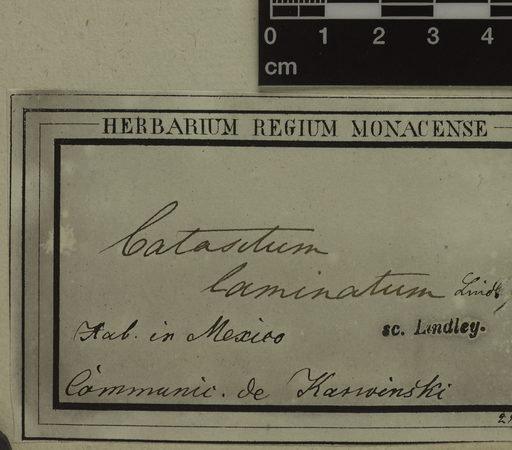 0 1 2 3 4
cm
HERBARIUM REGIUM MONACENSE
Catasetum
laminatum Lindl,
Hab. in Mexico
sc. Lindley.
Communic. de Karwinski